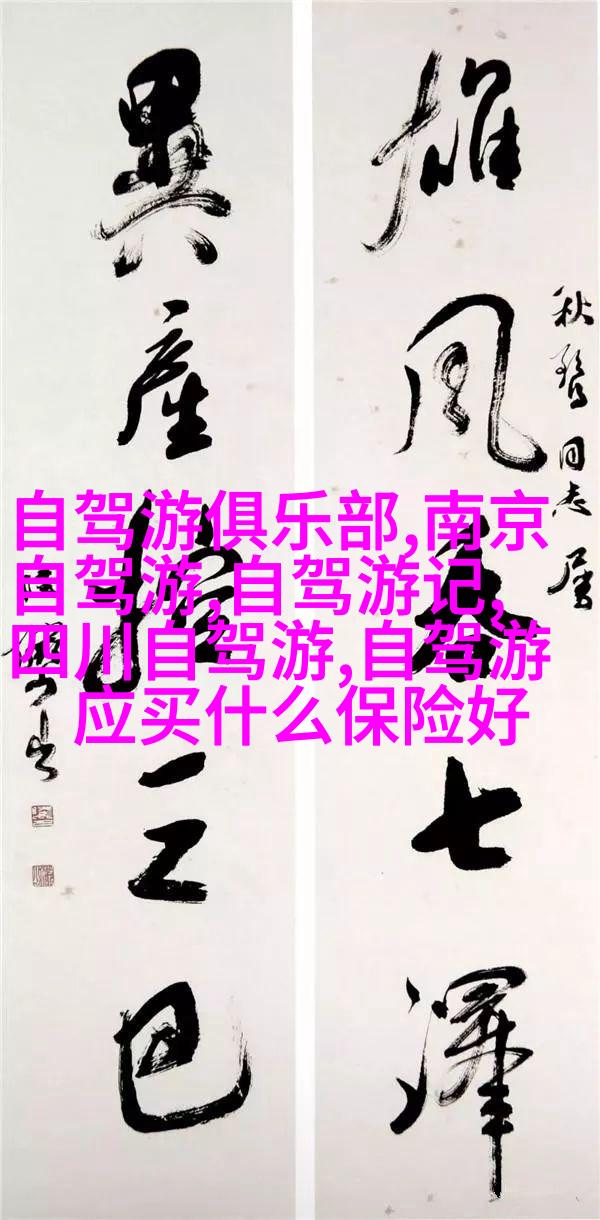 雄風吞七澤
秋鶩同志属
異產控三巴
自驾游俱乐部,南京
自驾游,自驾游记,
四川自驾游,自驾游
应买什么保险好